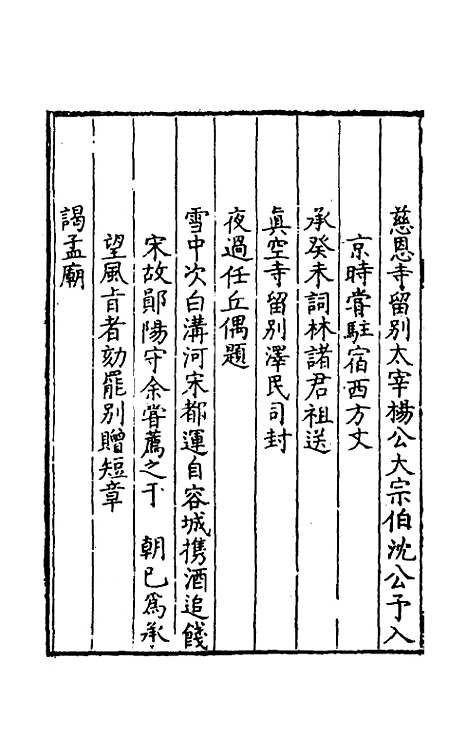 慈恩寺留别太宰楊公大宗伯沈公予入
京時嘗駐宿西方丈
承癸未詞林諸君祖送
眞空寺留别澤民司封
夜過任丘偶題
雪中次白溝河宋都運自容城携酒追餞
宋故鄖陽守余嘗薦之于　朝已爲承
望風㫖者劾罷别贈短章
謁孟廟